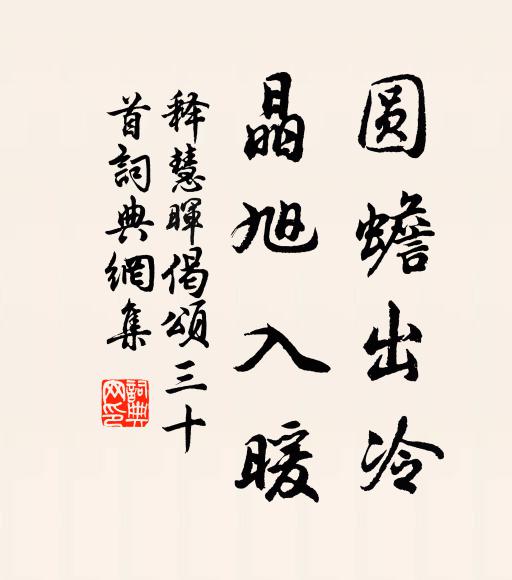 圆蟾出冷
晶旭入暖
释慧暉偈頌三十
首詞典網集
詞典网印